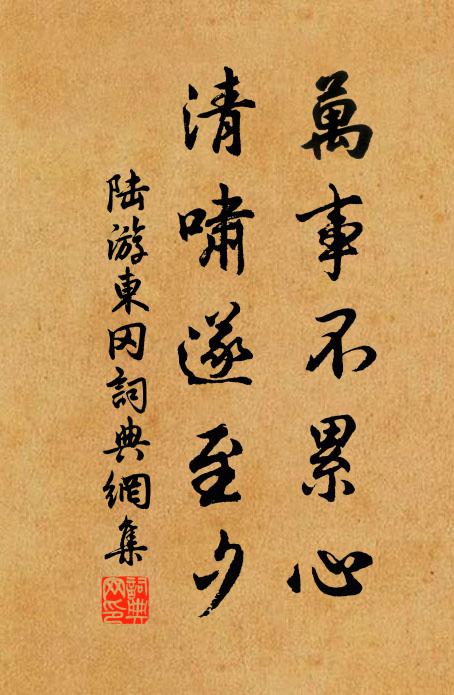 萬事不累心
清嘯遂至夕
陆游東冈詞典網集
詞典网印